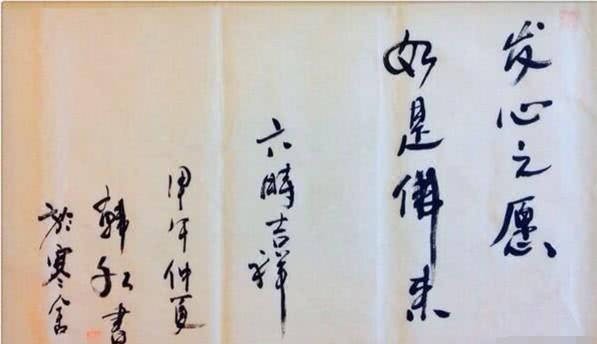 发心之愿
如是偋来
六時吉祥
甲午仲夏
韩红書
於寒舍